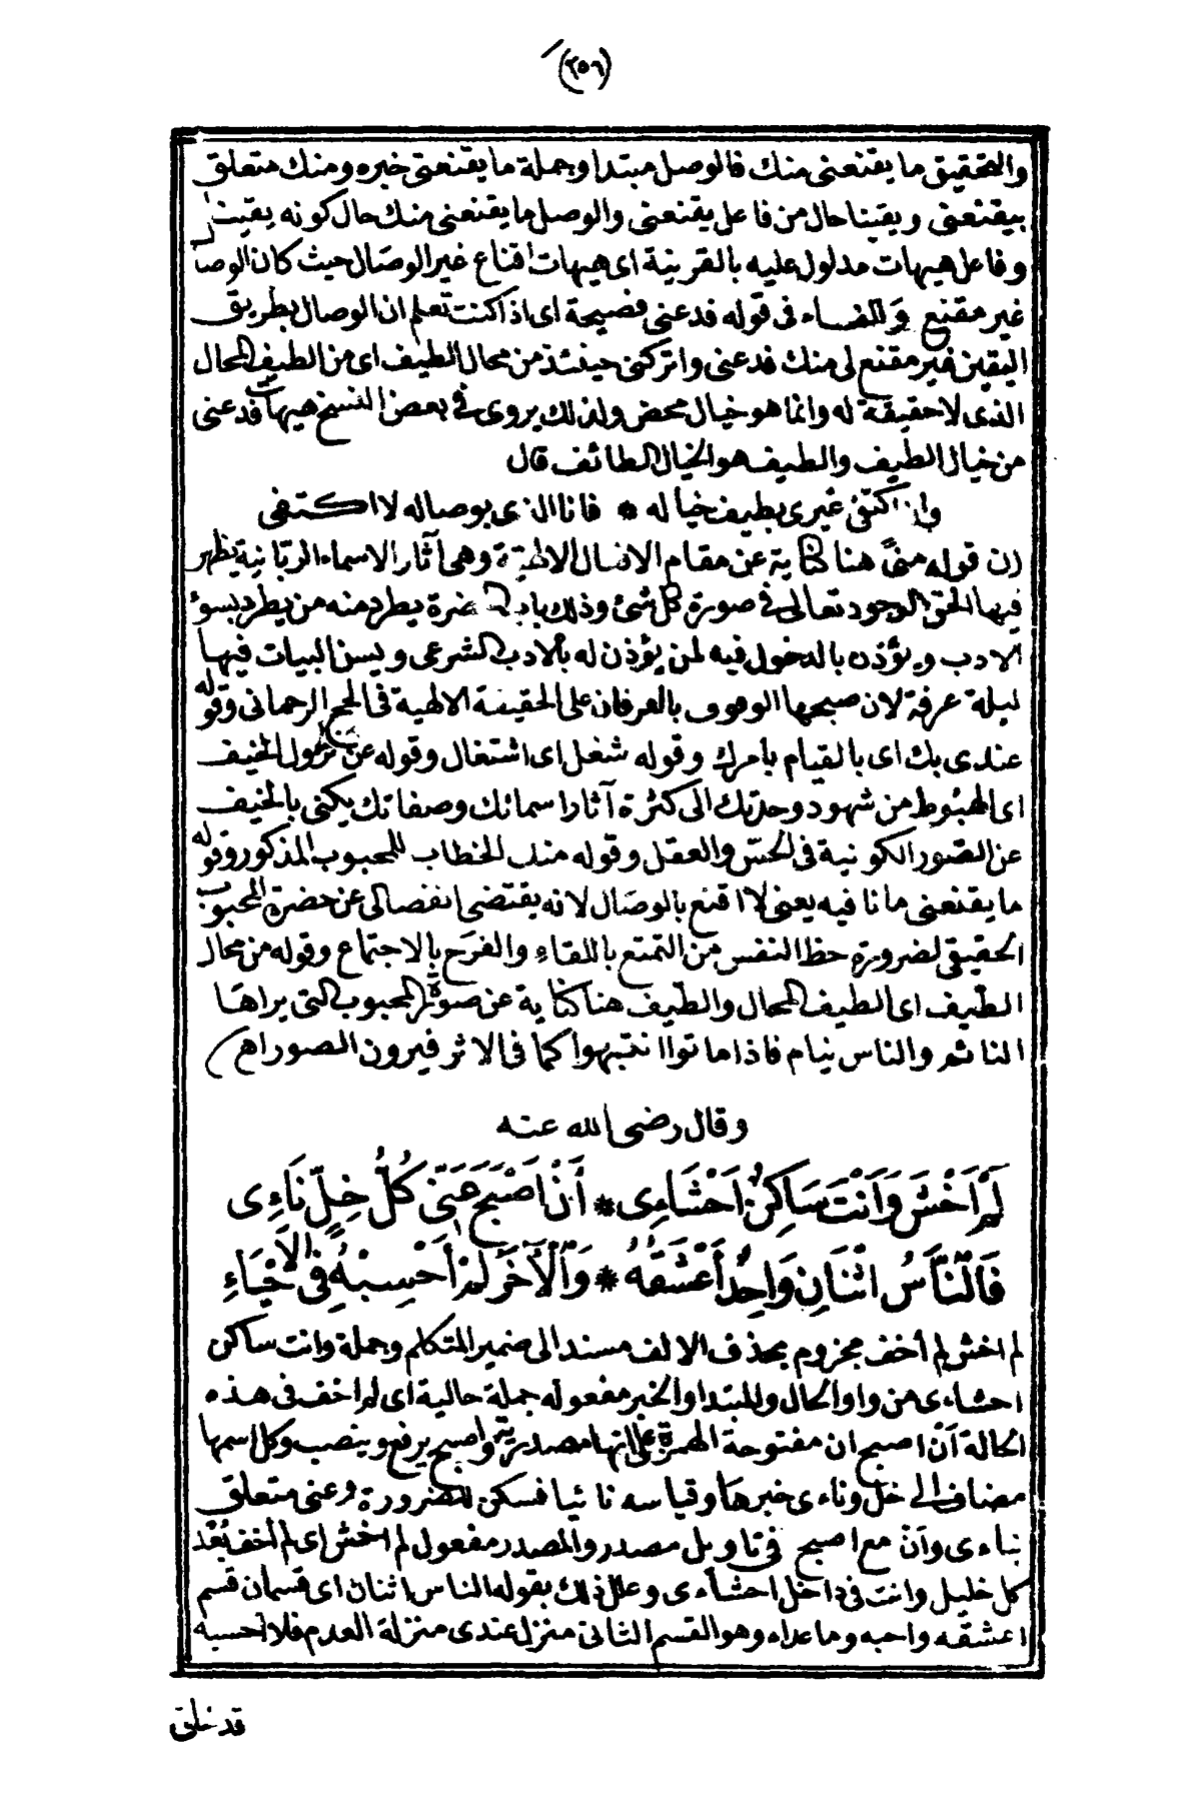 (٢٥٦)
والتحقيق ما يقنعنى منك فالوصل مبتدا وجملة ما يقنعنى خبره ومنك متعلق
بيقنعنى ويقينا حال من فاعل يقنعنى والوصل ما يقنعنى منك حال كونه يقينا
وفاعل هيهات مدلول عليه بالقرينة اى هيهات اقناع غير الوصال حيث كان الوصال
غير مقنع والفاء فى قوله فدعنى فصيحة اى اذا كنت تعلم ان الوصال بطريق
اليقين غير مقنع لى منك فدعنى واتركنى حينئذ من محال الطيف اى من الطيف المحال
الذى لا حقيقة له وانما هو خيال محض ولذلك يروى فى بعض النسخ هيهات فدعنى
من خيال الطيف والطيف هو الخيال الطائف قال
واذا اكتفى غيرى بطيف خياله * فانا الذى بوصاله لا اكتفى
(ن قوله منىً هنا كناية عن مقام الافعال الالهية وهى آثار الاسماء الربانية يظهر
فيها الحق الوجود تعالى فى صورة كل شئ وذلك باب الحضرة يطرد منه من يطرد بسوء
الادب ويؤذن بالدخول فيه لمن يؤذن له بالادب الشرعى ويسن البيات فيها
ليلة عرفة لان صبحها الوقوف بالعرفان على الحقيقة الالهية فى الحج الرحمانى وقوله
عندى بك اى بالقيام بأمرك وقوله شغل اى اشتغال وقوله عن نزول الخيف
اى الهبوط من شهود وحدتك الى كثرة آثار اسمائك وصفاتك يكنى بالخيف
عن الصور الكونية فى الحسّ والعقل وقوله منك الخطاب للمحبوب المذكور وقوله
ما يقنعنى ما نافيه يعنى لا اقنع بالوصال لانه يقتضى انفصالى عن حضرة المحبوب
الحقيقى لضرورة حظ النفس من التمتع باللقاء والفرح بالاجتماع وقوله من محال
الطيف اى الطيف المحال والطيف هنا كناية عن صورة المحبوب التى يراها
النائم والناس نيام فاذا ماتوا انتبهوا كما فى الاثر فيرون الصور اهـ)
وقال رضى الله عنه
لَمْ اَخْشَ وَاَنْتَ سَاكِنٌ اَحْشَاءِى * أَنْ اَصْبَحَ عَنّى كُلُّ خِلٍّ نَاءِى
فَالنَّاسُ اثْنَانِ وَاحِدٌ أَعْشَقُهُ * وَالْآخَرَ لَمْ أَحْسِبْهُ فِى الْاَحْيَاءِ
لم اخش لم أخف مجزوم بحذف الالف مسند الى ضمير المتكلم وجملة وانت ساكن
احشاءى من واو الحال والمبتدا والخبر مفعوله جملة حالية اى لم اخف فى هذه
الحالة أن اصبح ان مفتوحة الهمزة على انها مصدرية واصبح يرفع وينصب وكل اسمها
مضاف الى خل وناءى خبرها وقياسه نائيا فسكن للضرورة وعنى متعلق
بناءى وأن مع اصبح فى تاويل مصدر والمصدر مفعول لم اخش اى لم أخف بُعْد
كل خليل وانت فى داخل احشاءى وعلل ذلك بقوله الناس اثنان اى قسمان قسم
اعشقه واحبه وما عداه وهو القسم الثانى منزل عندى منزلة العدم فلا أحسبه
قد خلق